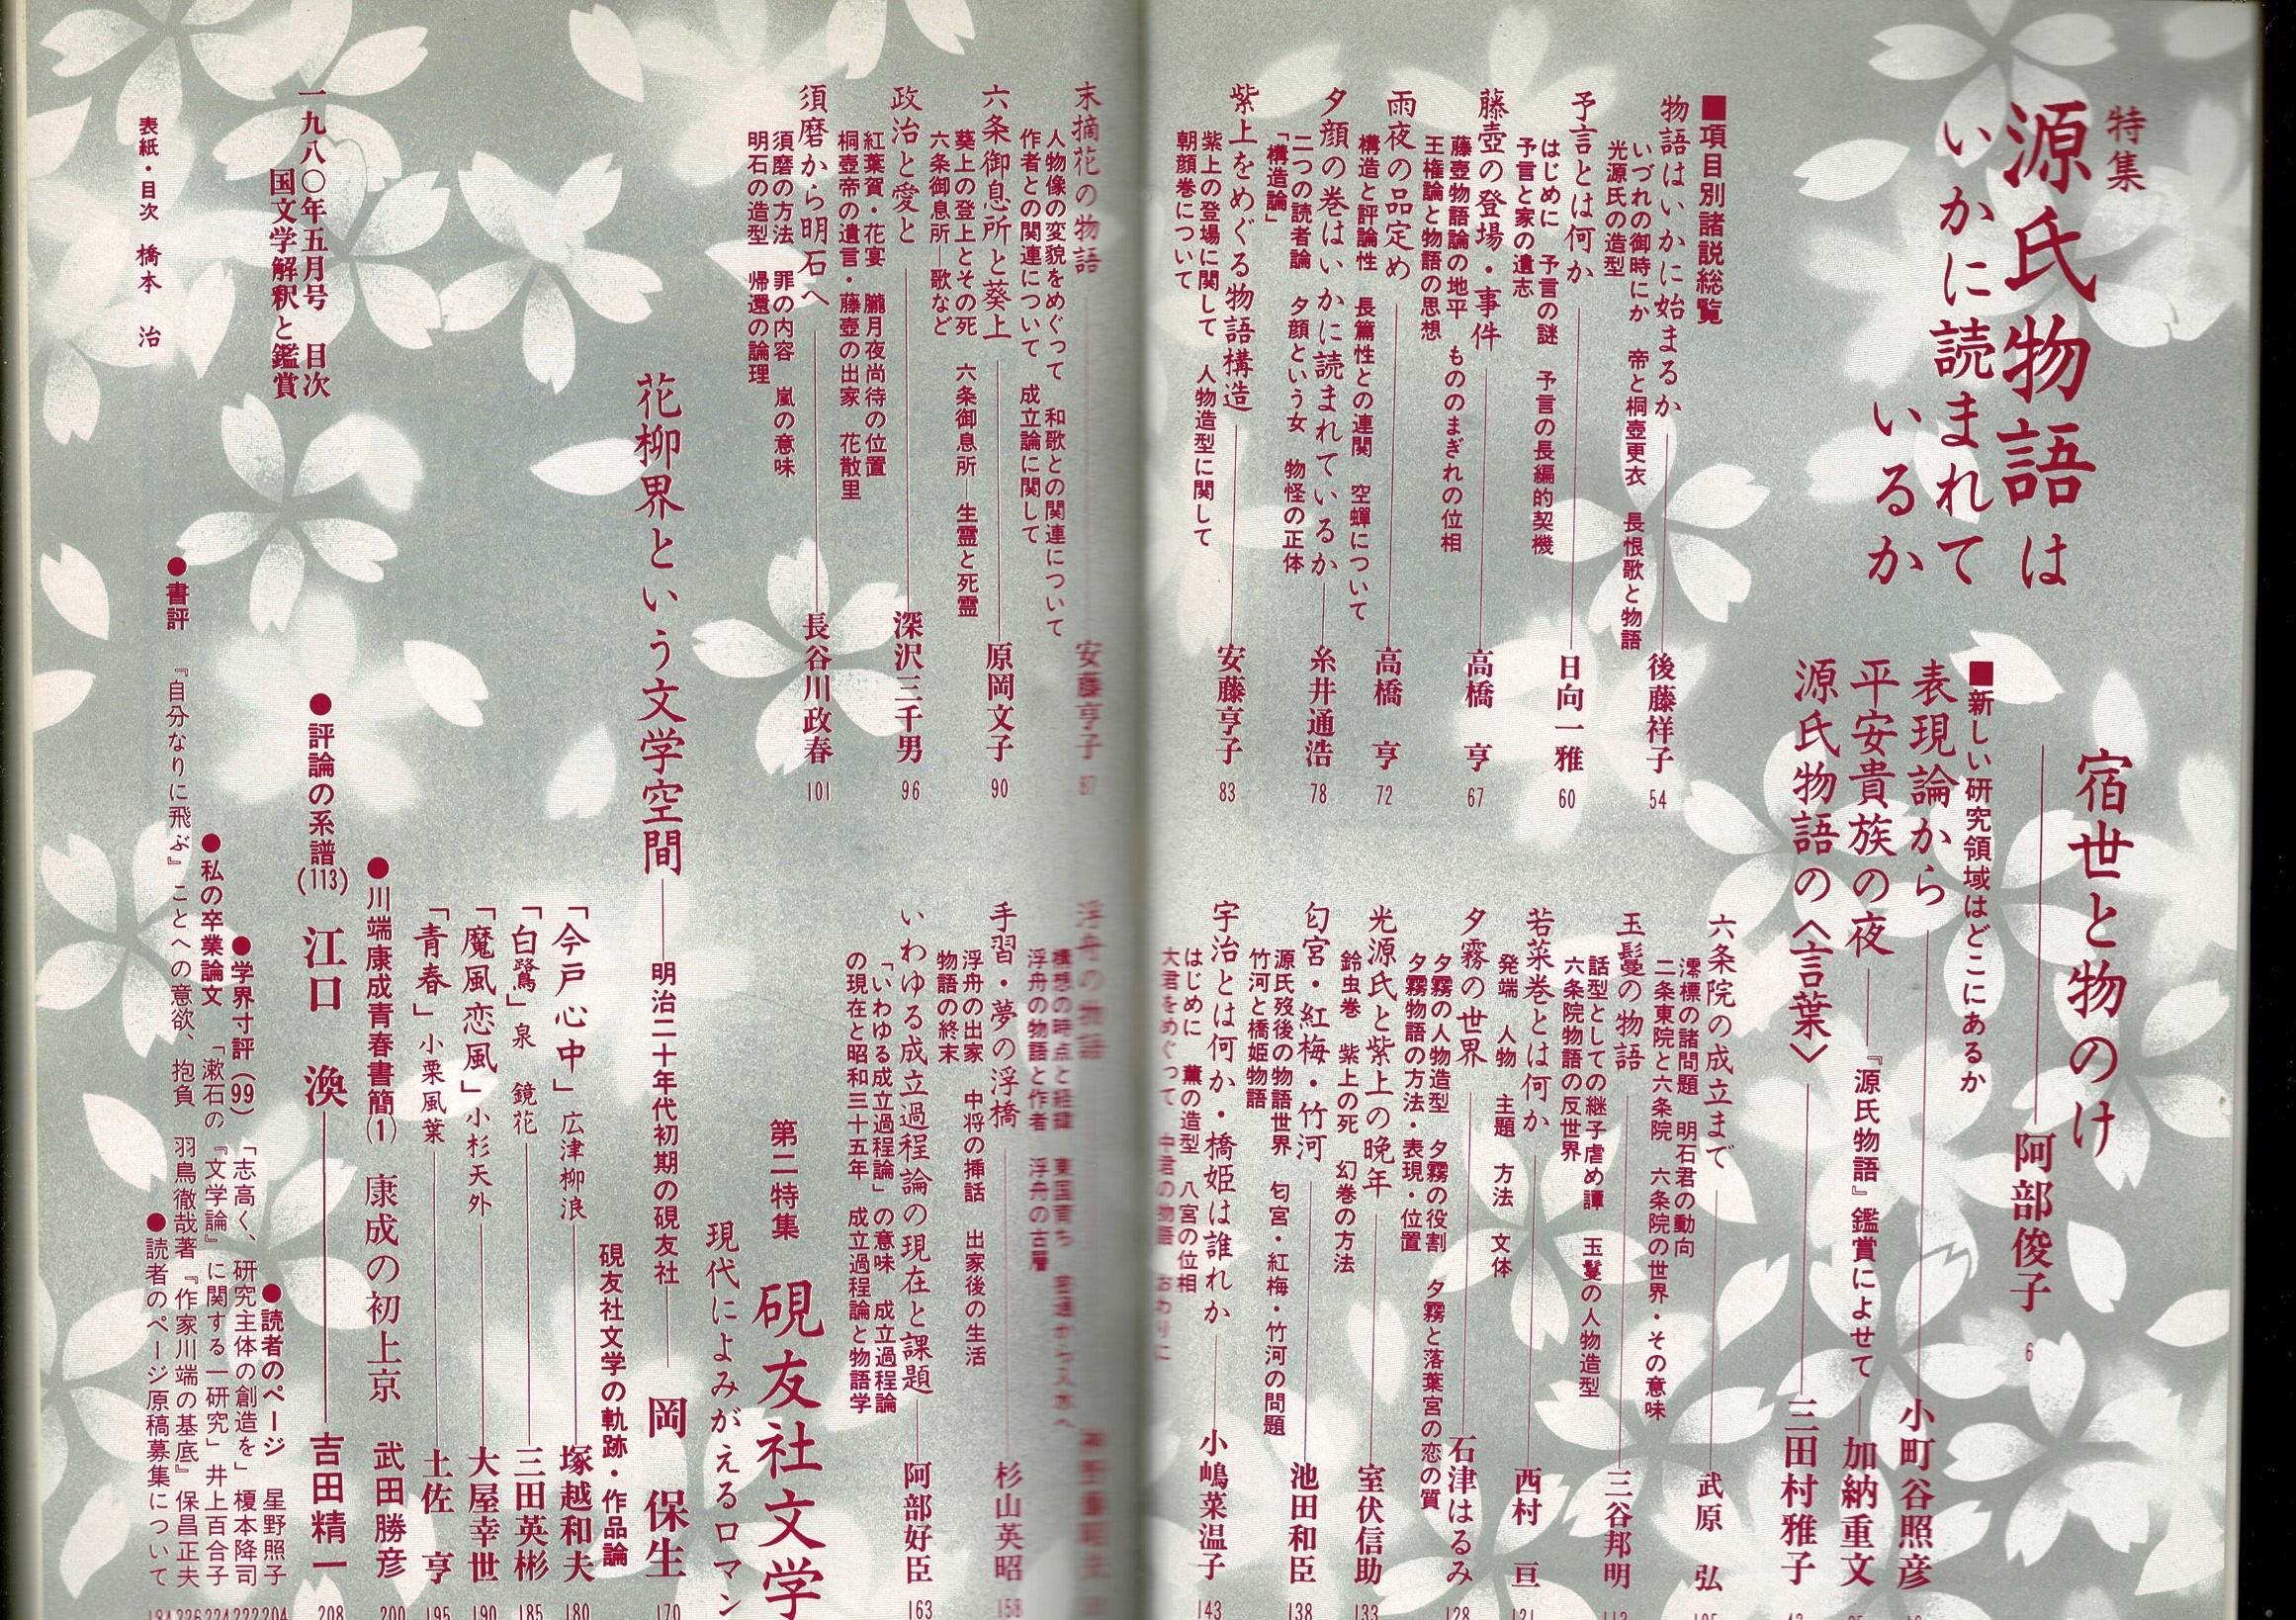 特集
源氏物語は
いかに読まれて
いるか
宿世と物のけ
阿部俊子
6
■新しい研究領域はどこにあるか
表現論から
小町谷照彦
平安貴族の夜
『源氏物語』鑑賞によせて
加納重文
源氏物語の〈言葉〉
三田村雅子
■項目別諸説総覧
物語はいかに始まるか
後藤祥子
54
いづれの御時にか 帝と桐壺更衣 長恨歌と物語
光源氏の造型
予言とは何か
日向一雅
60
はじめに 予言の謎 予言の長編的契機
予言と家の遺志
藤壺の登場・事件
高橋 亨
67
藤壺物語論の地平 もののまぎれの位相
王権論と物語の思想
雨夜の品定め
高橋 亨
72
構造と評論性 長篇性との連関 空蟬について
夕顔の巻はいかに読まれているか
糸井通浩
78
二つの読者論 夕顔という女 物怪の正体
「構造論」
紫上をめぐる物語構造
安藤亨子
83
紫上の登場に関して 人物造型に関して
朝顔巻について
末摘花の物語
安藤亨子
87
人物像の変貌をめぐって 和歌との関連について
作者との関連について 成立論に関して
六条御息所と葵上
原岡文子
90
葵上の登上とその死 六条御息所―生霊と死霊
六条御息所―歌など
政治と愛と
深沢三千男
96
紅葉賀・花宴 朧月夜尚侍の位置
桐壺帝の遺言・藤壺の出家 花散里
須磨から明石へ
長谷川政春
101
須磨の方法 罪の内容 嵐の意味
明石の造型 帰還の論理
六条院の成立まで
武原 弘
澪標の諸問題 明石君の動向
二条東院と六条院 六条院の世界・その意味
玉鬘の物語
三谷邦明
話型としての継子虐め譚 玉鬘の人物造型
六条院物語の反世界
若菜巻とは何か
西村 亘
121
発端 人物 主題 方法 文体
夕霧の世界
石津はるみ
128
夕霧の人物造型 夕霧の役割 夕霧と落葉宮の恋の質
夕霧物語の方法・表現・位置
光源氏と紫上の晩年
室伏信助
133
鈴虫巻 紫上の死 幻巻の方法
匂宮・紅梅・竹河
池田和臣
138
源氏歿後の物語世界 匂宮・紅梅・竹河の問題
竹河と橋姫物語
宇治とは何か・橋姫は誰れか
小嶋菜温子
143
はじめに 薫の造型 八宮の位相
大君をめぐって 中君の物語 おわりに
浮舟の物語
構想の時点と経緯 東国育ち
浮舟の物語と作者 浮舟の古層
手習・夢の浮橋
杉山英昭
158
浮舟の出家 中将の挿話 出家後の生活
物語の終末
いわゆる成立過程論の現在と課題
阿部好臣
163
「いわゆる成立過程論」の意味 成立過程論
の現在と昭和三十五年 成立過程論と物語学
第二特集
硯友社文学
現代によみがえるロマン
花柳界という文学空間
明治二十年代初期の硯友社
岡 保生
170
硯友社文学の軌跡・作品論
「今戸心中」広津柳浪
塚越和夫
180
「白鷺」泉 鏡花
三田英彬
185
「魔風恋風」小杉天外
大屋幸世
190
「青春」小栗風葉
土佐 亨
195
●川端康成青春書簡(1)
康成の初上京
武田勝彦
200
●評論の系譜(113)
江口 渙
吉田精一
208
●読者のページ 星野照子
204
●学界寸評(99)「志高く、研究主体の創造を」榎本隆司
222
●私の卒業論文 「漱石の『文学論』に関する一研究」井上百合子
224
●書評 『自分なりに飛ぶ』ことへの意欲、抱負 羽鳥徹哉著『作家川端の基底』保昌正夫
226
●読者のページ原稿募集について
184
一九八〇年五月号 目次
国文学解釈と鑑賞
表紙・目次 橋本 治